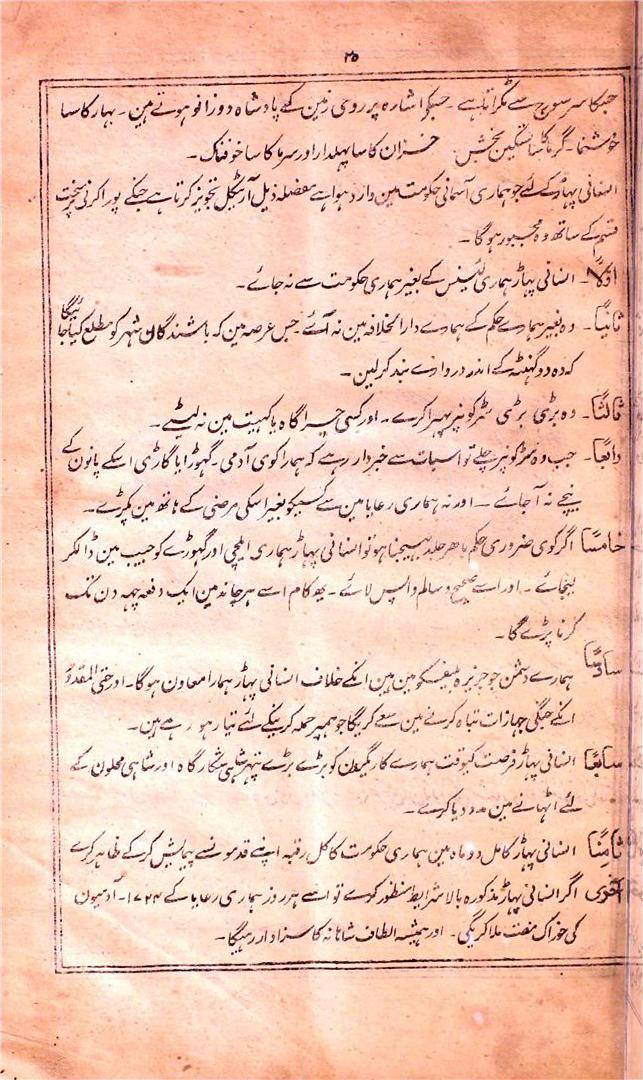 ۲۵
جسکا سر سورج سے ٹکراتا ہے ۔ جسکے اشارہ پر روی زمین کے پادشاہ دوزانو ہوتے ہین ۔ بہار کا سا
خوشنما ۔ گرما کا سا تسکین بخش ۔ خزان کا سا پھلدار اور سرما کا سا خوفناک ۔
انسانی پہاڑ کے لئے جو ہماری آسمانی حکومت مین وارد ہوا ہے مفصلہ ذیل آرٹیکل تجویز کرتا ہے جنکے پورا کرنی پر سخت
قسم کے ساتھ وہ مجبور ہو گا ۔
اوّلاً ۔ انسانی پہاڑ ہماری لئیسنس کے بغیر ہماری حکومت سے نہ جائے ۔
ثانیاً ۔ وہ بغیر ہمارے حکم کے ہمارے دار الخلافہ مین نہ آئے ۔ جس عرصہ مین کہ باشندگان شہر کو مطلع کیا جائیگا
کہ وہ دو گھنٹہ کے اندر دروازے بند کر لین ۔
ثالثاً ۔ وہ بڑی بڑی سڑکونپر پھرا کرے ۔ اور کسی چراگاہ یا کہیت مین نہ لیٹے ۔
رابعاً ۔ جب وہ سڑکونپر چلے تو اسبات سے خبردار رہے کہ ہمارا کوی آدمی ۔ گھوڑا یا گاڑی اسکے پانون کے
نیچے نہ آ جائے ۔ اور نہ ہماری رعایا مین سے کسیکو بغیر اسکی مرضی کے ہاتھ مین پکڑے ۔
خامساً اگر کوی ضروری حکم باھر جلد بھیجنا ہو تو انسانی پہاڑ ہماری ایلچی اور گھوڑے کو جیب مین ڈالکر
لیجائے ۔ اور اسے صحیح و سالم واپس لائے ۔ یھ کام اسے ھر چاند مین ایک دفعہ چھہ دن تک
کرنا پڑے گا ۔
سادساً ہمارے دشمن جو جزیرہ بلیفسکو مین ہین انکے خلاف انسانی پہاڑ ہمارا معاون ہو گا ۔ اور حتی المقدور
انکے جنگی جہازات تباہ کرنے مین سعے کریگا جو ہمپر حملہ کرینکے لئے تیار ہو رہے ہین ۔
سابعاً انسانی پہاڑ فرصت کیوقت ہمارے کاریگرون کو بڑے بڑے پتھر شاہی شکار گاہ اور شاہی محلون کے
لئے اٹھانے مین مدد دیا کرے ۔
ثامناً انسانی پہاڑ کامل دو ماہ مین ہماری حکومت کا کل رقبہ اپنے قدمونسے پیمایش کر کے ظاہر کرے
آخری اگر انسانی پہاڑ مذکورہ بالا شرایط منظور کرے تو اسے ھر روز ہماری رعایا کے ۱۷۲۴ ۔ آدمیون
کی خوراک مفت ملا کریگی ۔ اور ہمیشہ الطاف شاہانہ کا سزاوار رہیگا ۔